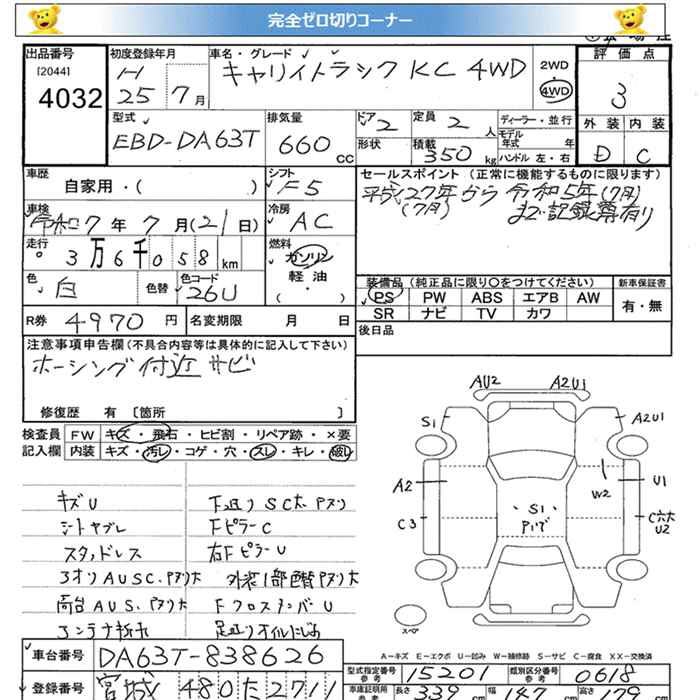 完全ゼロ切りコーナー
出品番号 初度登録年月 車名・グレード 評価点
[2044] H キャリイトラック KC 4WD 2WD
4032 25年7月 4WD 3
型式 排気量 ドア 2 定員 2人 ディーラー・並行 外装 内装
EBD-DA63T 660cc 形状 積載 350kg モデル年式 年 ハンドル 左・右 D C
車歴 シフト セールスポイント (正常に機能するものに限ります)
自家用・( ) F5 平成27年から 令和5年(7月)
車検 冷房 (7月) まで記録簿有り
令和7年7月(21日) AC
走行 燃料
3万6千058km ガソリン
軽油
・( )
色 色替 色コード 装備品 (純正品に限り○をつけてください) 新車保証書
白 26U PS PW ABS エアB AW 有・無
R券 4970円 名変期限 月 日 SR ナビ TV カワ
注意事項申告欄(不具合内容等は具体的に記入して下さい) 後日品
ホーシング付近サビ
修復歴 有 〔箇所 〕
検査員 FW キズ・飛石・ヒビ割・リペア跡・×要
記入欄 内装 キズ・汚レ・コゲ・穴・スレ・キレ・破レ
キズU 下廻りSC大 アリ
シートヤブレ FピラーC
スタッドレス 右FピラーU
3オリAUSC 外装1部色替
荷台AUS FクロスメンバーU
足廻りオイルにじみ
AU2 A2U1
S1 A2U1
A2 W2 U1
S1
C3 U2
スペア
A-キズ E-エクボ U-凹み W-補修跡 S-サビ C-腐食 XX-交換済
車台番号 DA63T-838626 型式指定番号 参考 15201 類別区分番号 参考 0618
登録番号 宮城 480 た 2711 車庫証明用 参考 長さ 339cm 幅 147cm 高さ